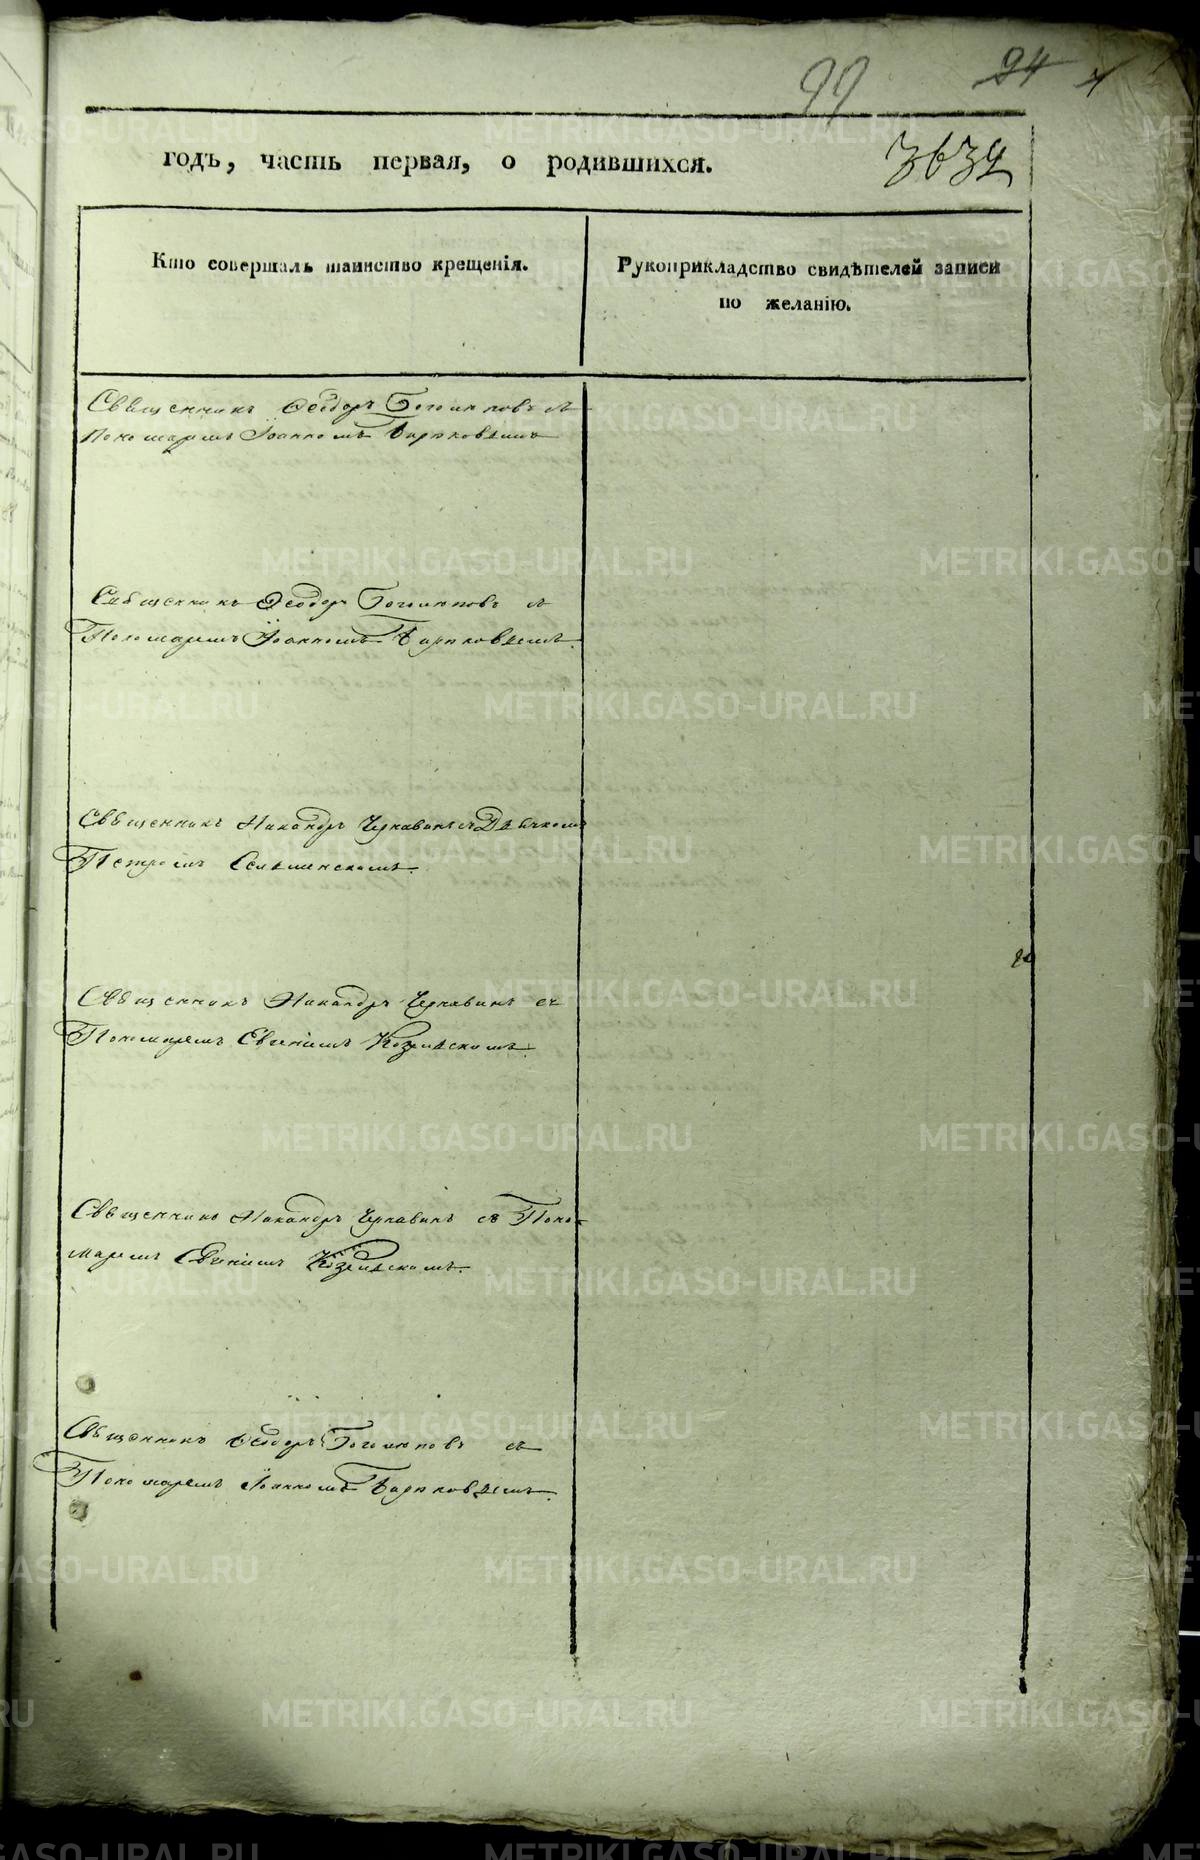 99 24
годъ, часть первая, о родившихся.
3632
Кто совершалъ таинство крещенія.
Рукоприкладство свидѣтелей записи
по желанію.
Священникъ Ѳеодоръ съ
Пономаремъ Іоанномъ Бирюковымъ
Священникъ Ѳеодоръ съ
Пономаремъ Іоанномъ Бирюковымъ.
Священникъ Никандръ Чернавинъ съ Дьячкомъ
Петромъ Селменскомъ.
Священникъ Никандръ Чернавинъ съ
Пономаремъ Евгеніемъ Козельскомъ.
Священникъ Никандръ Чернавинъ съ Поно-
маремъ Евгеніемъ Козельскомъ.
Священникъ Ѳеодоръ съ
Пономаремъ Іоанномъ Бирюковымъ.
METRIKI.GASO-URAL.RU